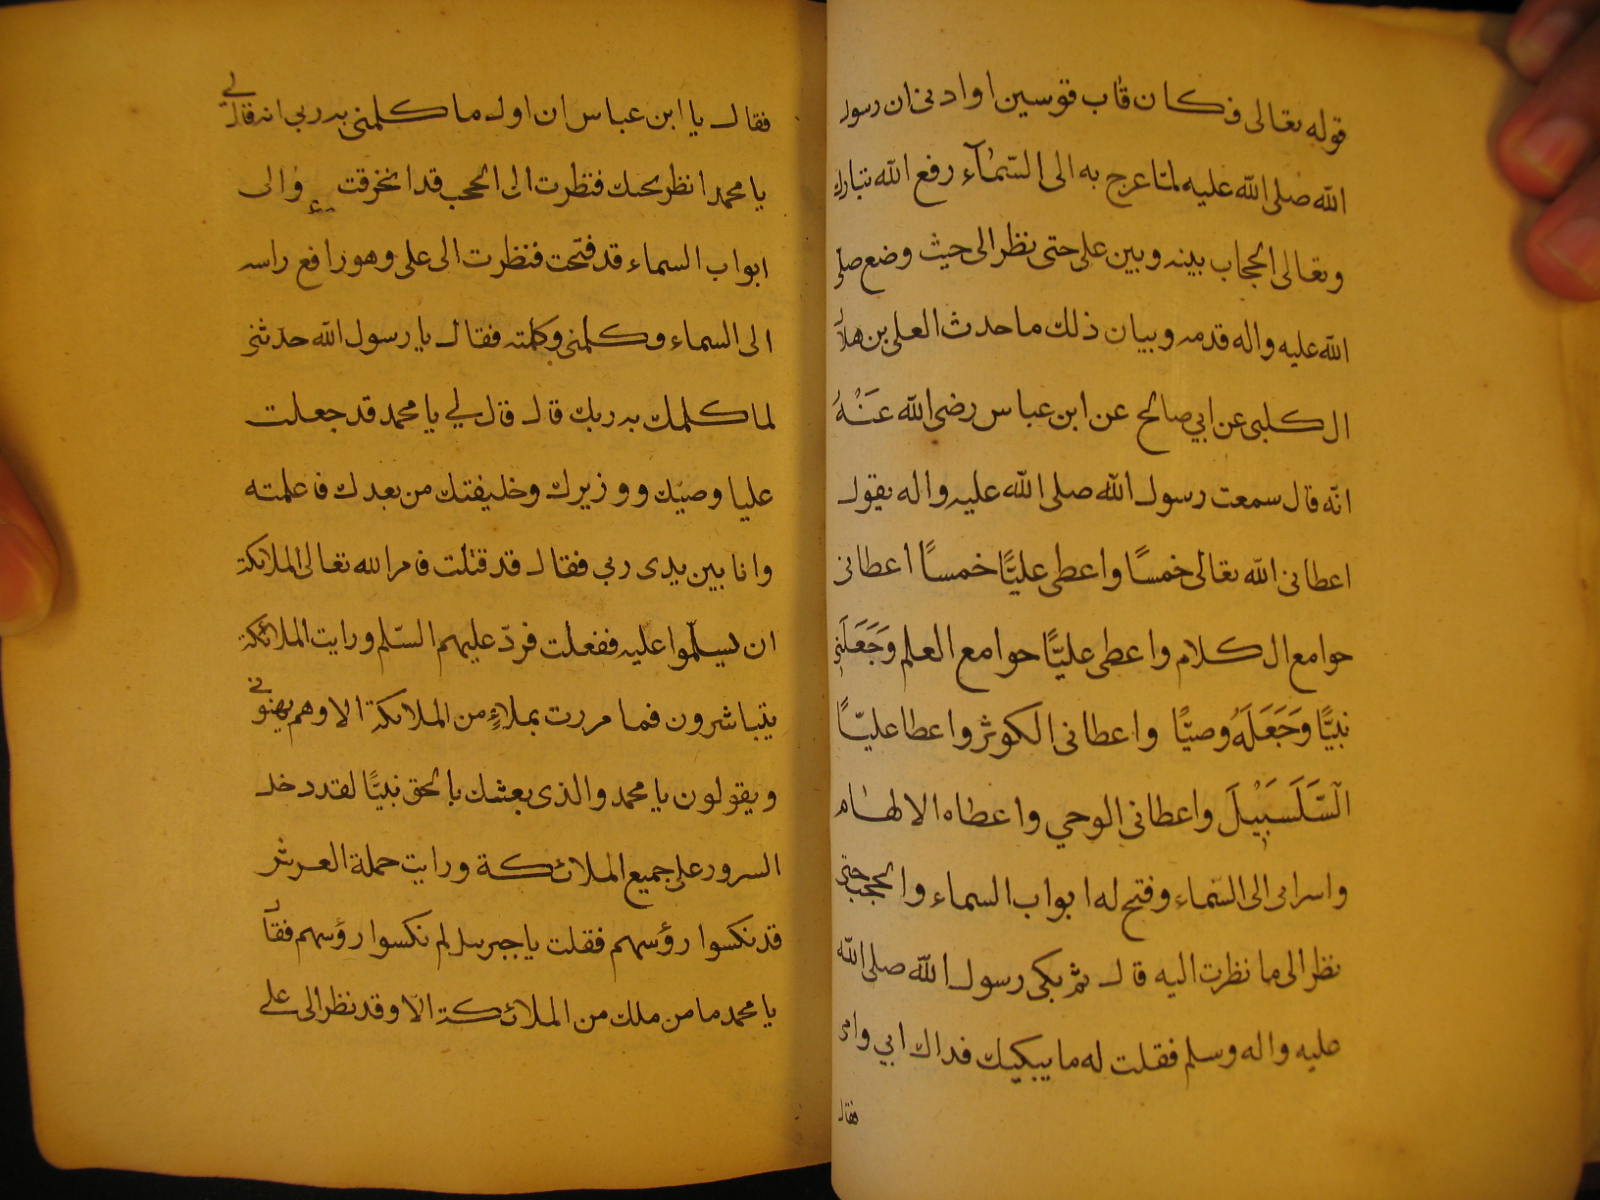 قوله تعالى فكان قاب قوسين او ادنى ان رسول
الله صلى الله عليه لما عرج به الى السّمآء رفع الله تبارك
وتعالى الحجاب بينه وبين على حتى نظر الى حيث وضع صلى
الله عليه واله قدمه وبيان ذلك ما حدث العلى بن هلال
الكلبى عن ابي صالح عن ابن عباس رضى الله عَنْهُ
انّه قال سمعت رسول الله صلى الله عليه واله يقول
اعطانى الله تعالى خمسًا واعطى عليًّا خمسًا اعطانى
جوامع الكلام واعطى عليًّا جوامع العلم وَجَعَلَنِى
نبيًّا وَجَعَلَهُ وصيًّا واعطانى الكوثر واعطا عليّاً
السَّلَسَبِيْلَ واعطاني الوحي واعطاه الالهام
واسرابى الى السّماء وفتح له ابواب السماء والحجب حتى
نظر الى ما نظرت اليه قال ثم بكى رسول الله صلى الله
عليه واله وسلم فقلت له ما يبكيك فداك ابي وامى
فقال
فقال يا ابن عباس ان اول ما كلمنى به ربي انه قال لي
يا محمد انظر تحتك فنظرت الى الحجب قد انخرقت والى
ابواب السماء قد فتحت فنظرت الى على وهو رافع راسه
الى السماء وكلمنى وكلمته فقال يا رسول الله حدثنى
لما كلمك به ربك قال قال لي يا محمد قد جعلت
عليا وصيّك ووزيرك وخليفتك من بعدك فاعلمته
وانا بين يدى ربي فقال قد قبلت فامر الله تعالى الملائكة
ان يسلّموا عليه ففعلت فردّ عليهم السّلم ورايت الملائكة
يتباشرون فما مررت بملاءٍ من الملائكة الا وهم يهنونى
ويقولون يا محمد والذى بعثك بالحق نبيًّا لقد دخل
السرور على جميع الملائكة ورايت حملة العرش
قد نكسوا رؤسهم فقلت يا جبريل لم نكسوا رؤسهم فقال
يا محمد ما من ملك من الملائكة الّا وقد نظر الى على